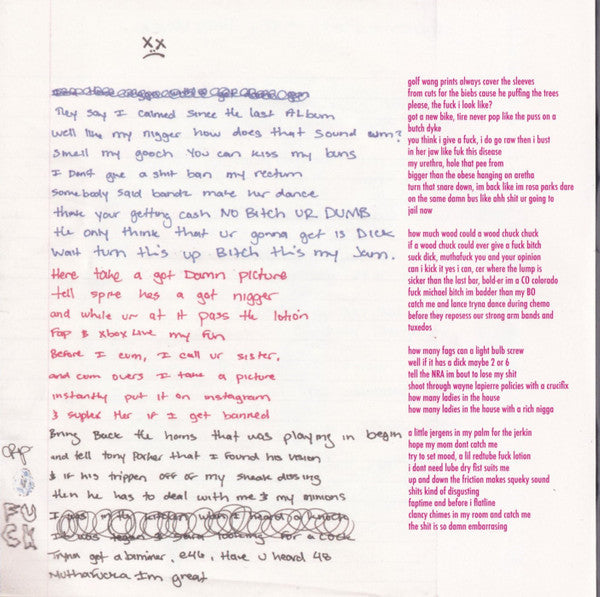 xx
They say I calmed since the last Album
well like my nigger how does that sound um?
Smell my gooch You can kiss my buns
I Dont give a shit ban my rectum
somebody said bandz make her dance
thats your getting cash NO Bitch UR DUMB
the only think that ur gonna get is DICK
wait turn this up Bitch this my Jam.
Here take a got Damn picture
tell spike hes a got nigger
and while ur at it pass the lotion
Fap & Xbox Live my fun
Before I cum, I call ur sister,
and cum overs I take a picture
instantly put it on instagram
& suplex Her if I get banned
Bring Back the horns that was playing in begin
and tell tony Parker that I found his vision
& if his trippen off of my sneak dissing
then he has to deal with me & my minions
I was in the kitchen when I heard a knock
Tryna get a bammer, e46, Have u heard 48
Muthafucka Im great
FUCK
golf wang prints always cover the sleeves
from cuts for the biebs cause he puffing the trees
please, the fuck i look like?
got a new bike, tire never pop like the puss on a
butch dyke
you think i give a fuck, i do go raw then i bust
in her jaw like fuk this disease
my urethra, hole that pee from
bigger than the obese hanging on aretha
turn that snare down, im back like im rosa parks dare
on the same damn bus like ahh shit ur going to
jail now
how much wood could a wood chuck chuck
if a wood chuck could ever give a fuck bitch
suck dick, muthafuck you and your opinion
can i kick it yes i can, cer where the lump is
sicker than the last bar, bold-er im a CO colorado
fuck michael bitch im badder than my BO
catch me and lance tryna dance during chemo
before they reposess our strong arm bands and
tuxedos
how many fags can a light bulb screw
well if it has a dick maybe 2 or 6
tell the NRA im bout to lose my shit
shoot through wayne lapierre policies with a crucifix
how many ladies in the house
how many ladies in the house with a rich nigga
a little jergens in my palm for the jerkin
hope my mom dont catch me
try to set mood, a lil redtube fuck lotion
i dont need lube dry fist suits me
up and down the friction makes squeeky sound
shits kind of disgusting
faptime and before i flatline
clancy chimes in my room and catch me
the shit is so damn embarrasing